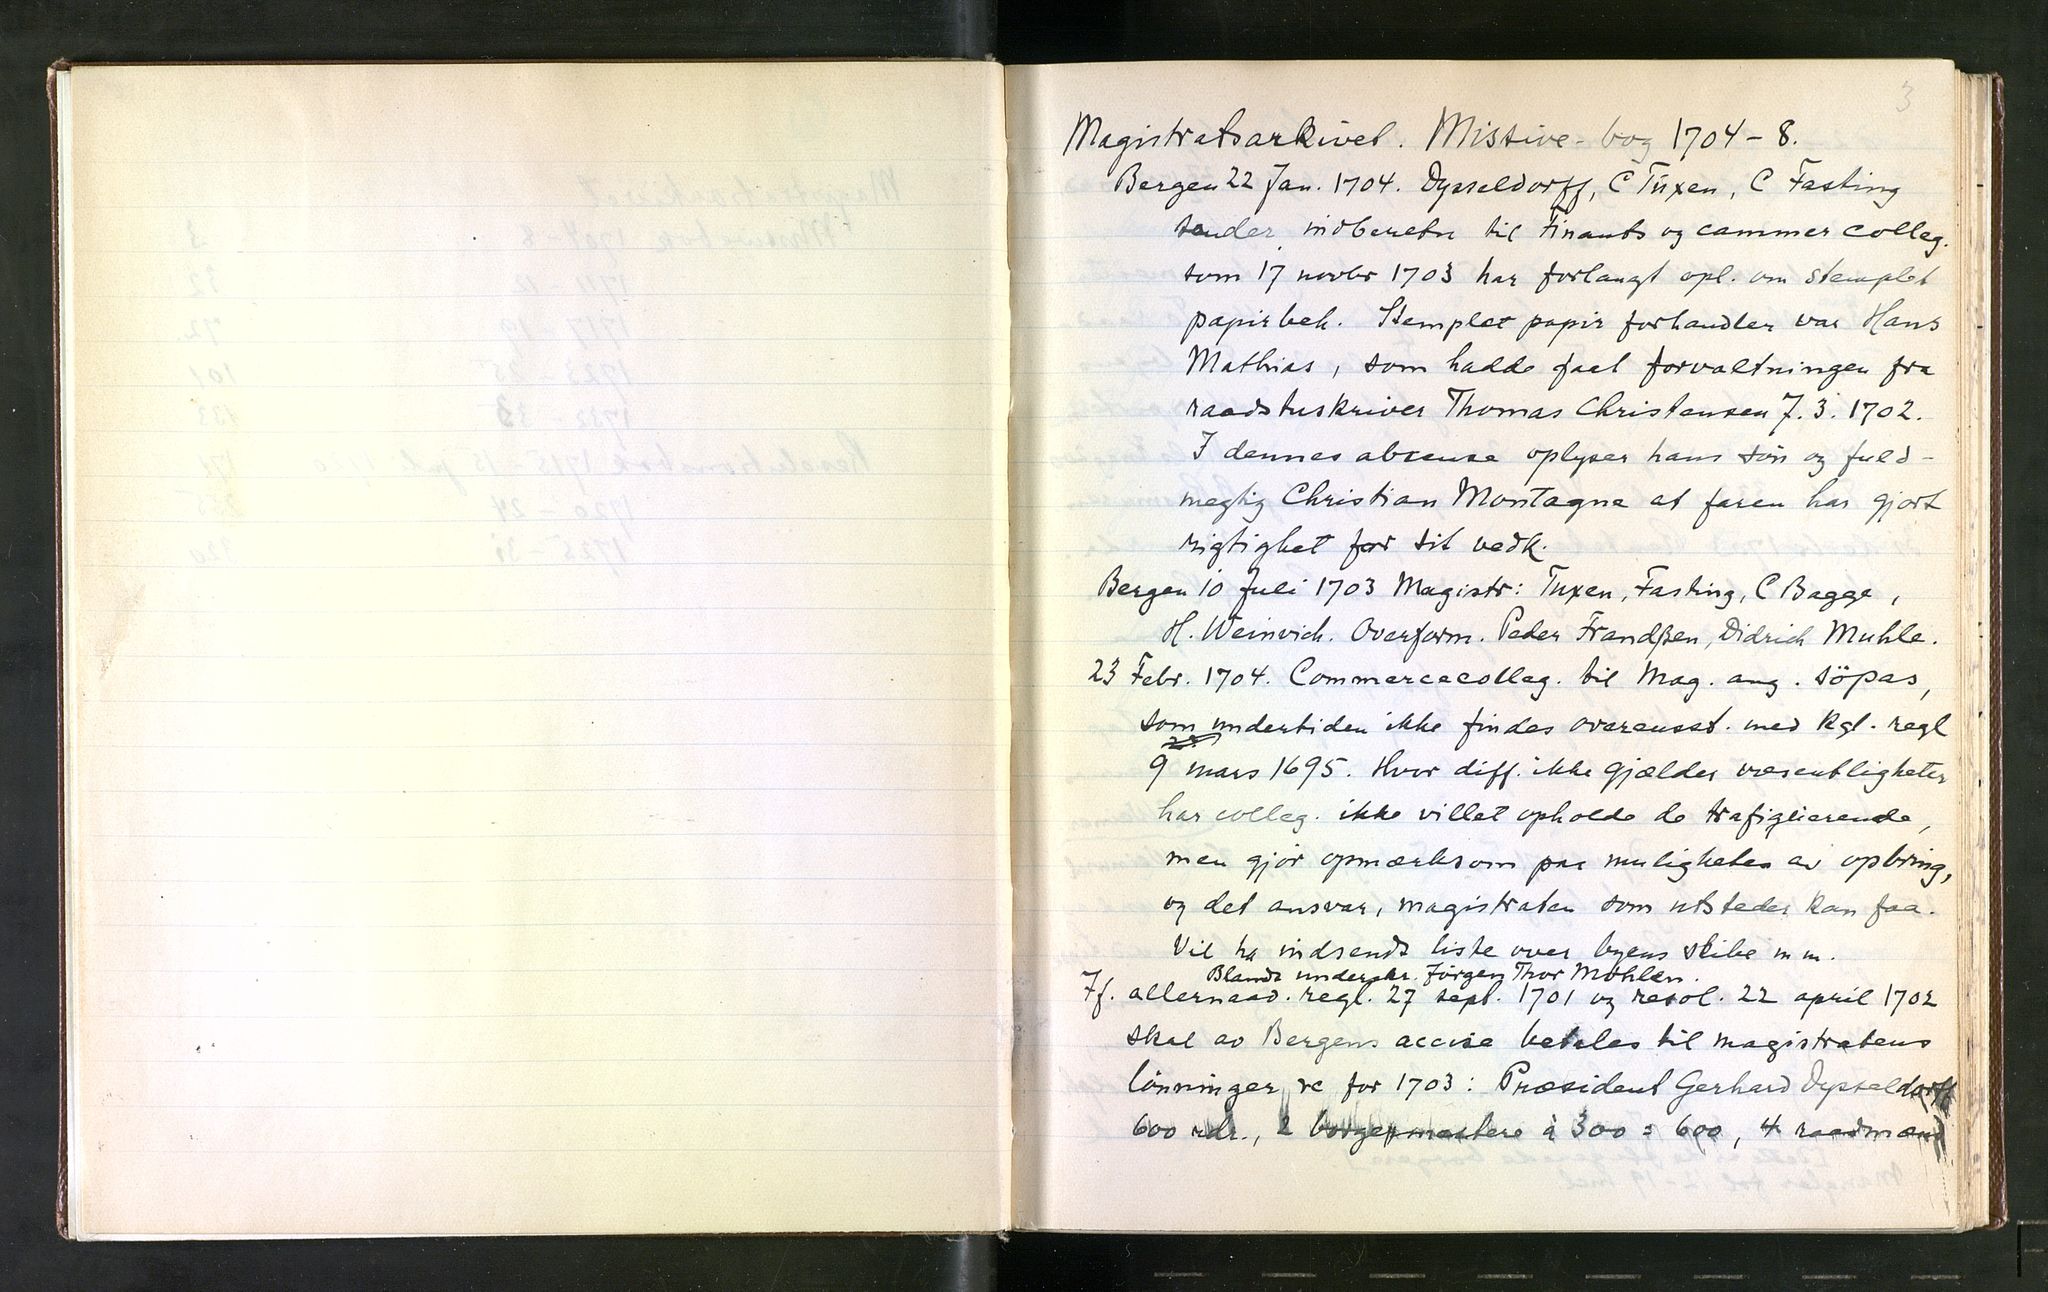 3
Magistratsarkivet. Missive-bog 1704-8.
Bergen 22 Jan. 1704. Dysseldorff, C Tüxen, C Fasting
sender indberetn til Finants og cammer colleg.
som 17 novbr 1703 har forlangt opl. om stemplet
papirbeh. Stemplet papir forhandler var Hans
Mathias, som hadde faat forvaltningen fra
raadstuskriver Thomas Christensen 7.3.1702.
I dennes absense oplyser hans sön og fuld-
megtig Christian Montagne at faren har gjort
rigtighet for sit vedk.
Bergen 10 Juli 1703 Magistr: Tuxen, Fasting, C Bagge,
H. Weinvich. Overform. Peder Frandßen, Didrich Muhle.
23 Febr. 1704. Commercecolleg. til Mag. ang. söpas,
som undertiden ikke findes overensst. med kgl. regl
9 mars 1695. Hvor diff. ikke gjælder væsentligheter
har colleg. ikke villet opholde de trafiqlierende,
men gjör opmerksom paa muligheten av opbring,
og det ansvar, magistraten som utsteder kan faa.
Vil ha indsendt liste over byens skibe m m.
Blandt underskr. Jörgen Thor Möhlen.
Jf. allernaad. regl. 27 sept. 1701 og resol. 22 april 1702
skal av Bergens accise betales til magistratens
lönninger rc for 1703: Præsident Gerhard Dysseldorff
600 rdr., 2 borgermestere à 300 = 600, 4 raadmænd